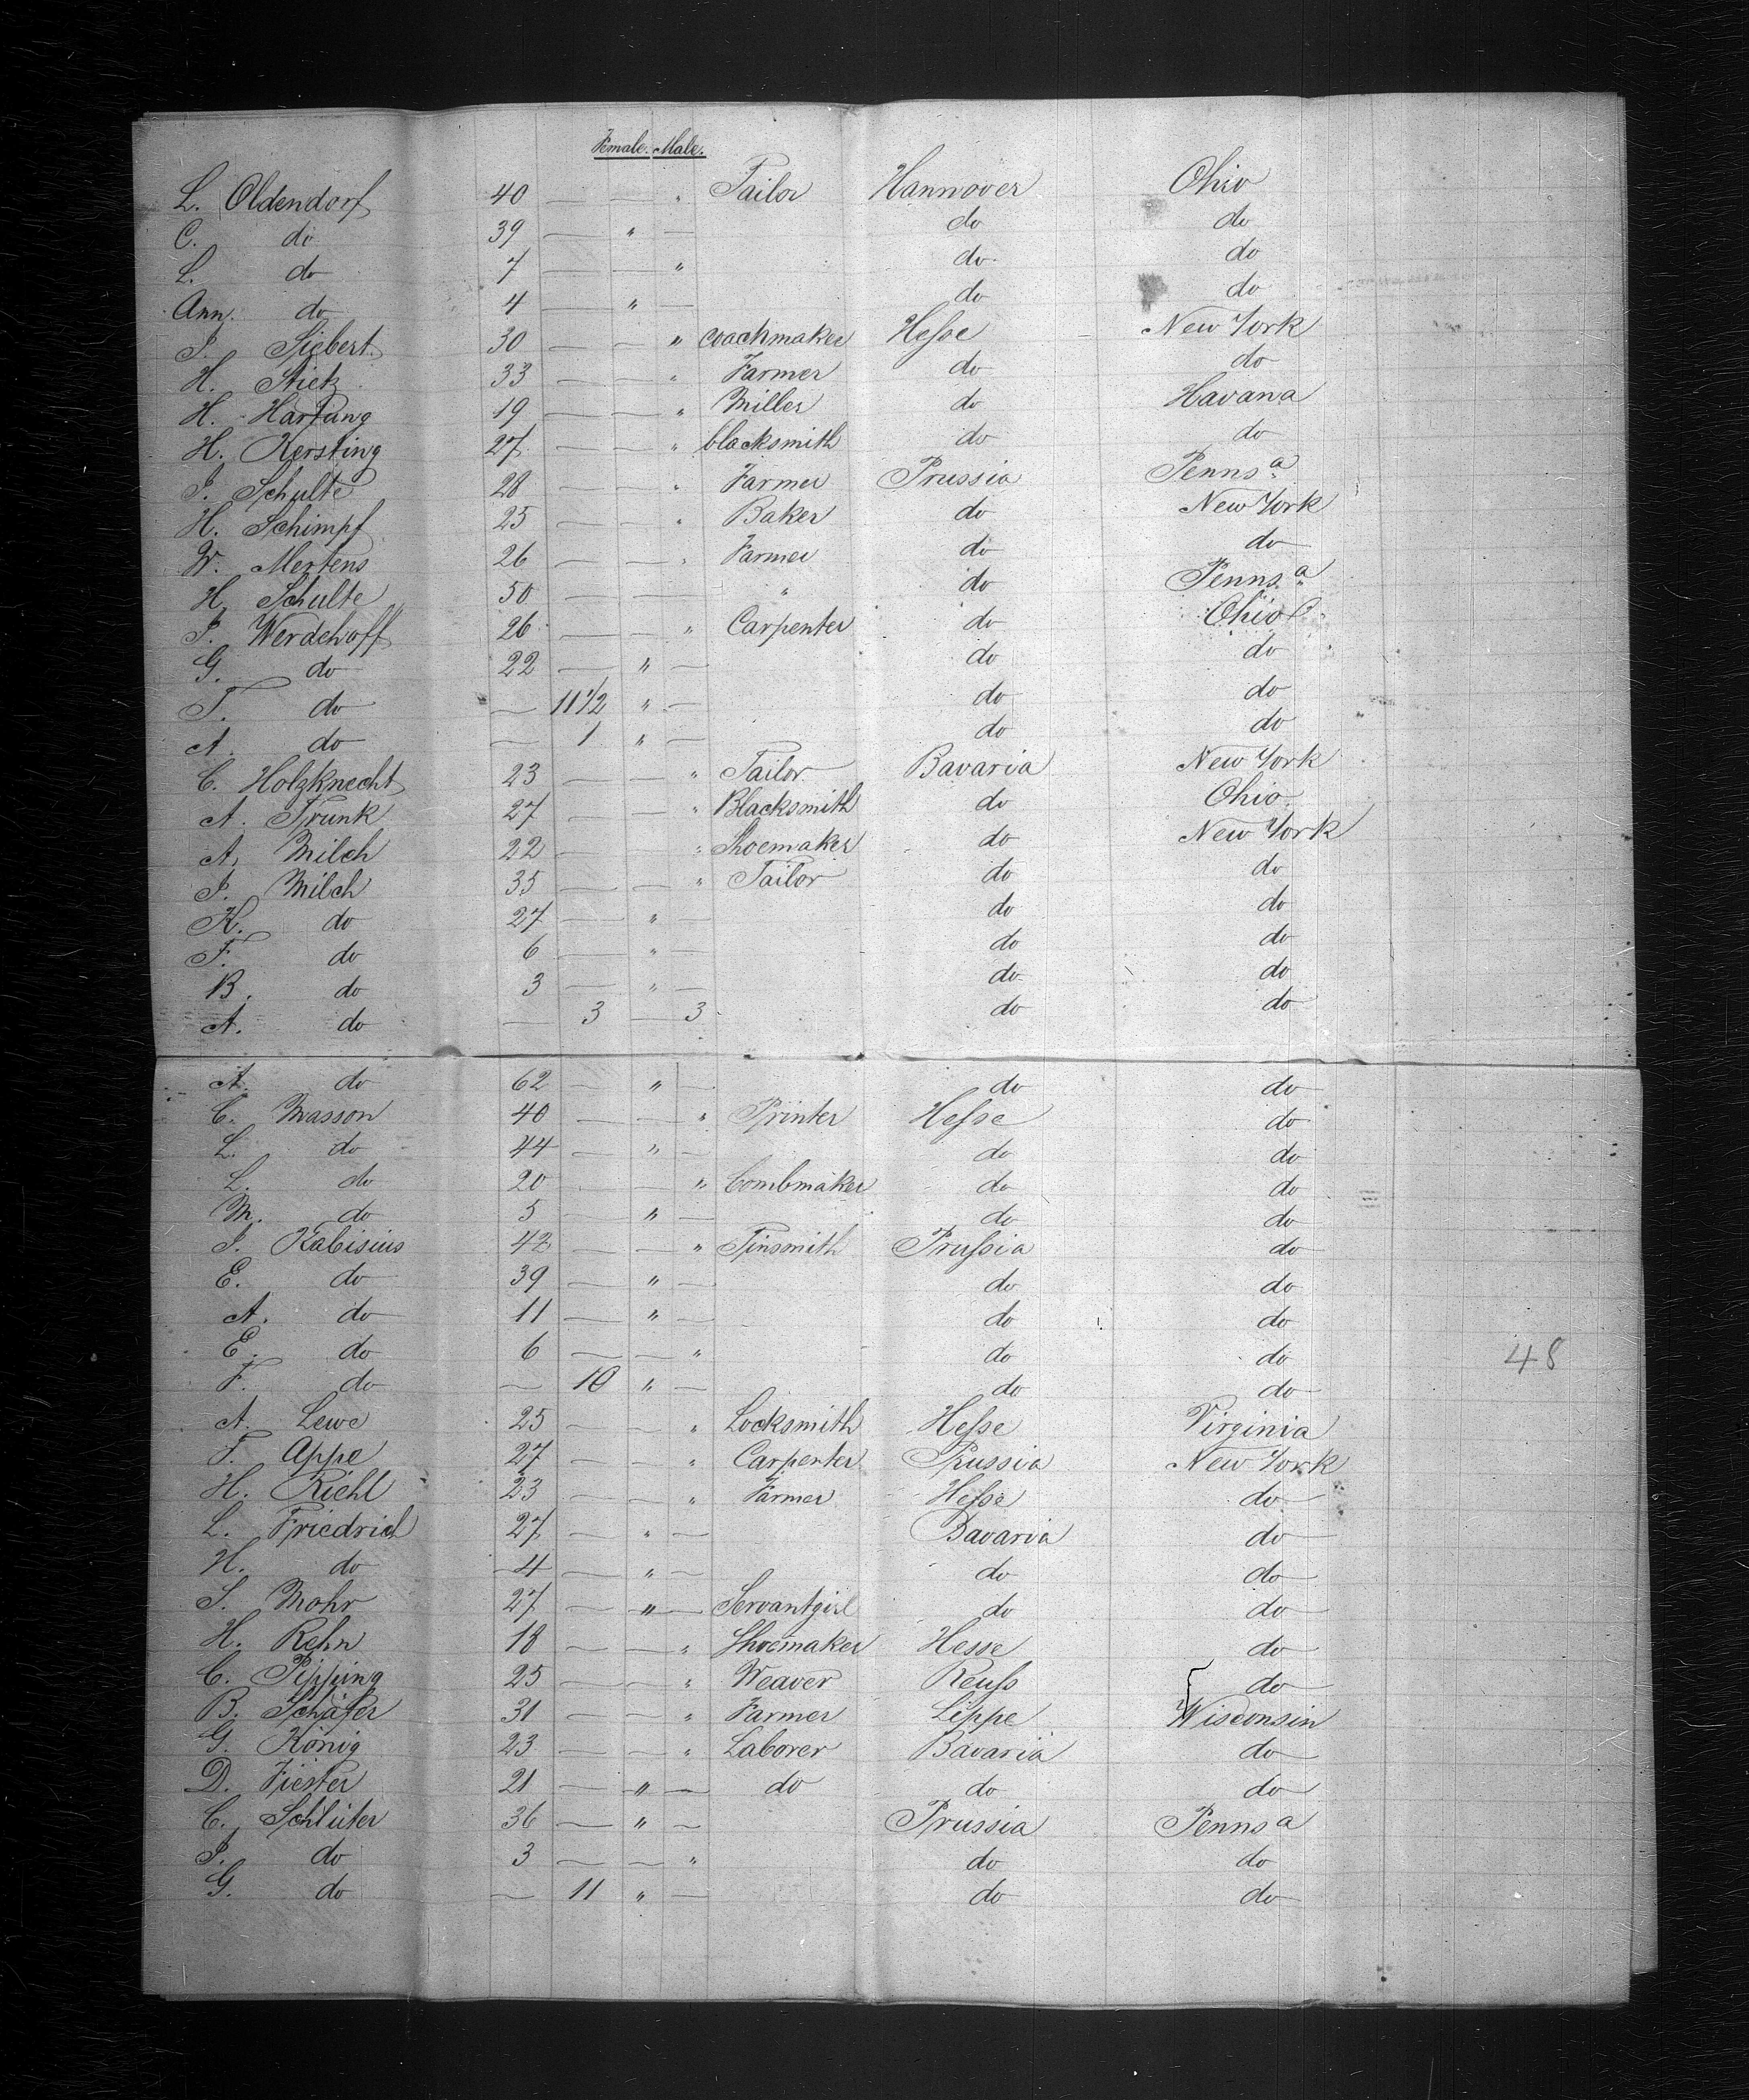 Female. Male.
L. Oldendorf 40 — — " Tailor Hannover Ohio
C. do 39 — " — do do
L. do 7 — — " do do
Ann. do 4 — " — do do
J. Siebert 30 — — " coachmaker Hesse New York
H. Stietz 33 — — " Farmer do do
H. Hartung 19 — — " Miller do Havana
H. Kersting 27 — — " blacksmith do do
J. Schulte 28 — — " Farmer Prussia Penns.a
H. Schimpf 25 — — " Baker do New York
W. Mertens 26 — — " Farmer do do
H. Schulte 50 — — " do Penns.a
J. Werdehoff 26 — — " Carpenter do Ohio
G. do 22 — " — do do
T. do — 11 1/2 " — do do
A. do — 1 " — do do
C. Holzknecht 23 — — " Tailor Bavaria New York
A. Trunk 27 — — " Blacksmith do Ohio.
A. Milch 22 " Shoemaker do New York
J. Milch 35 — — " Tailor do do
K. do 27 — " — do do
F. do 6 — " — do do
B. do 3 — " — do do
A. do — 3 — 3 do do
A. do 62 — " — do do
C. Masson 40 — — " Printer Hesse do
L. do 44 — " — do do
L. do 20 — " Combmaker do do
M. do 5 — " — do do
J. Kabisius 42 — — " Tinsmith Prussia do
E. do 39 — " — do do
A. do 11 — " — do do
E. do 6 — — " do do
48
F. do — 10 " — do do
A. Lewe 25 — — " Locksmith Hesse Virginia
F. Appe 27 — — " Carpenter Prussia New York
H. Riehl 23 — — " Farmer Hesse do
L. Friedrich 27 — " — Bavaria do
H. do 4 — " — do do
S. Mohr 27 — " — Servantgirl do do
H. Rehn 18 — — " Shoemaker Hesse do
C. Pipping 25 — — " Weaver Reuss do
B. Schäfer 31 — — " Farmer Lippe Wisconsin
G. König 23 — — " Laborer Bavaria do
D. Fiester 21 — " — do do do
C. Schlüter 36 — " — Prussia Penns a
J. do 3 — — " do do
G. do — 11 " — do do